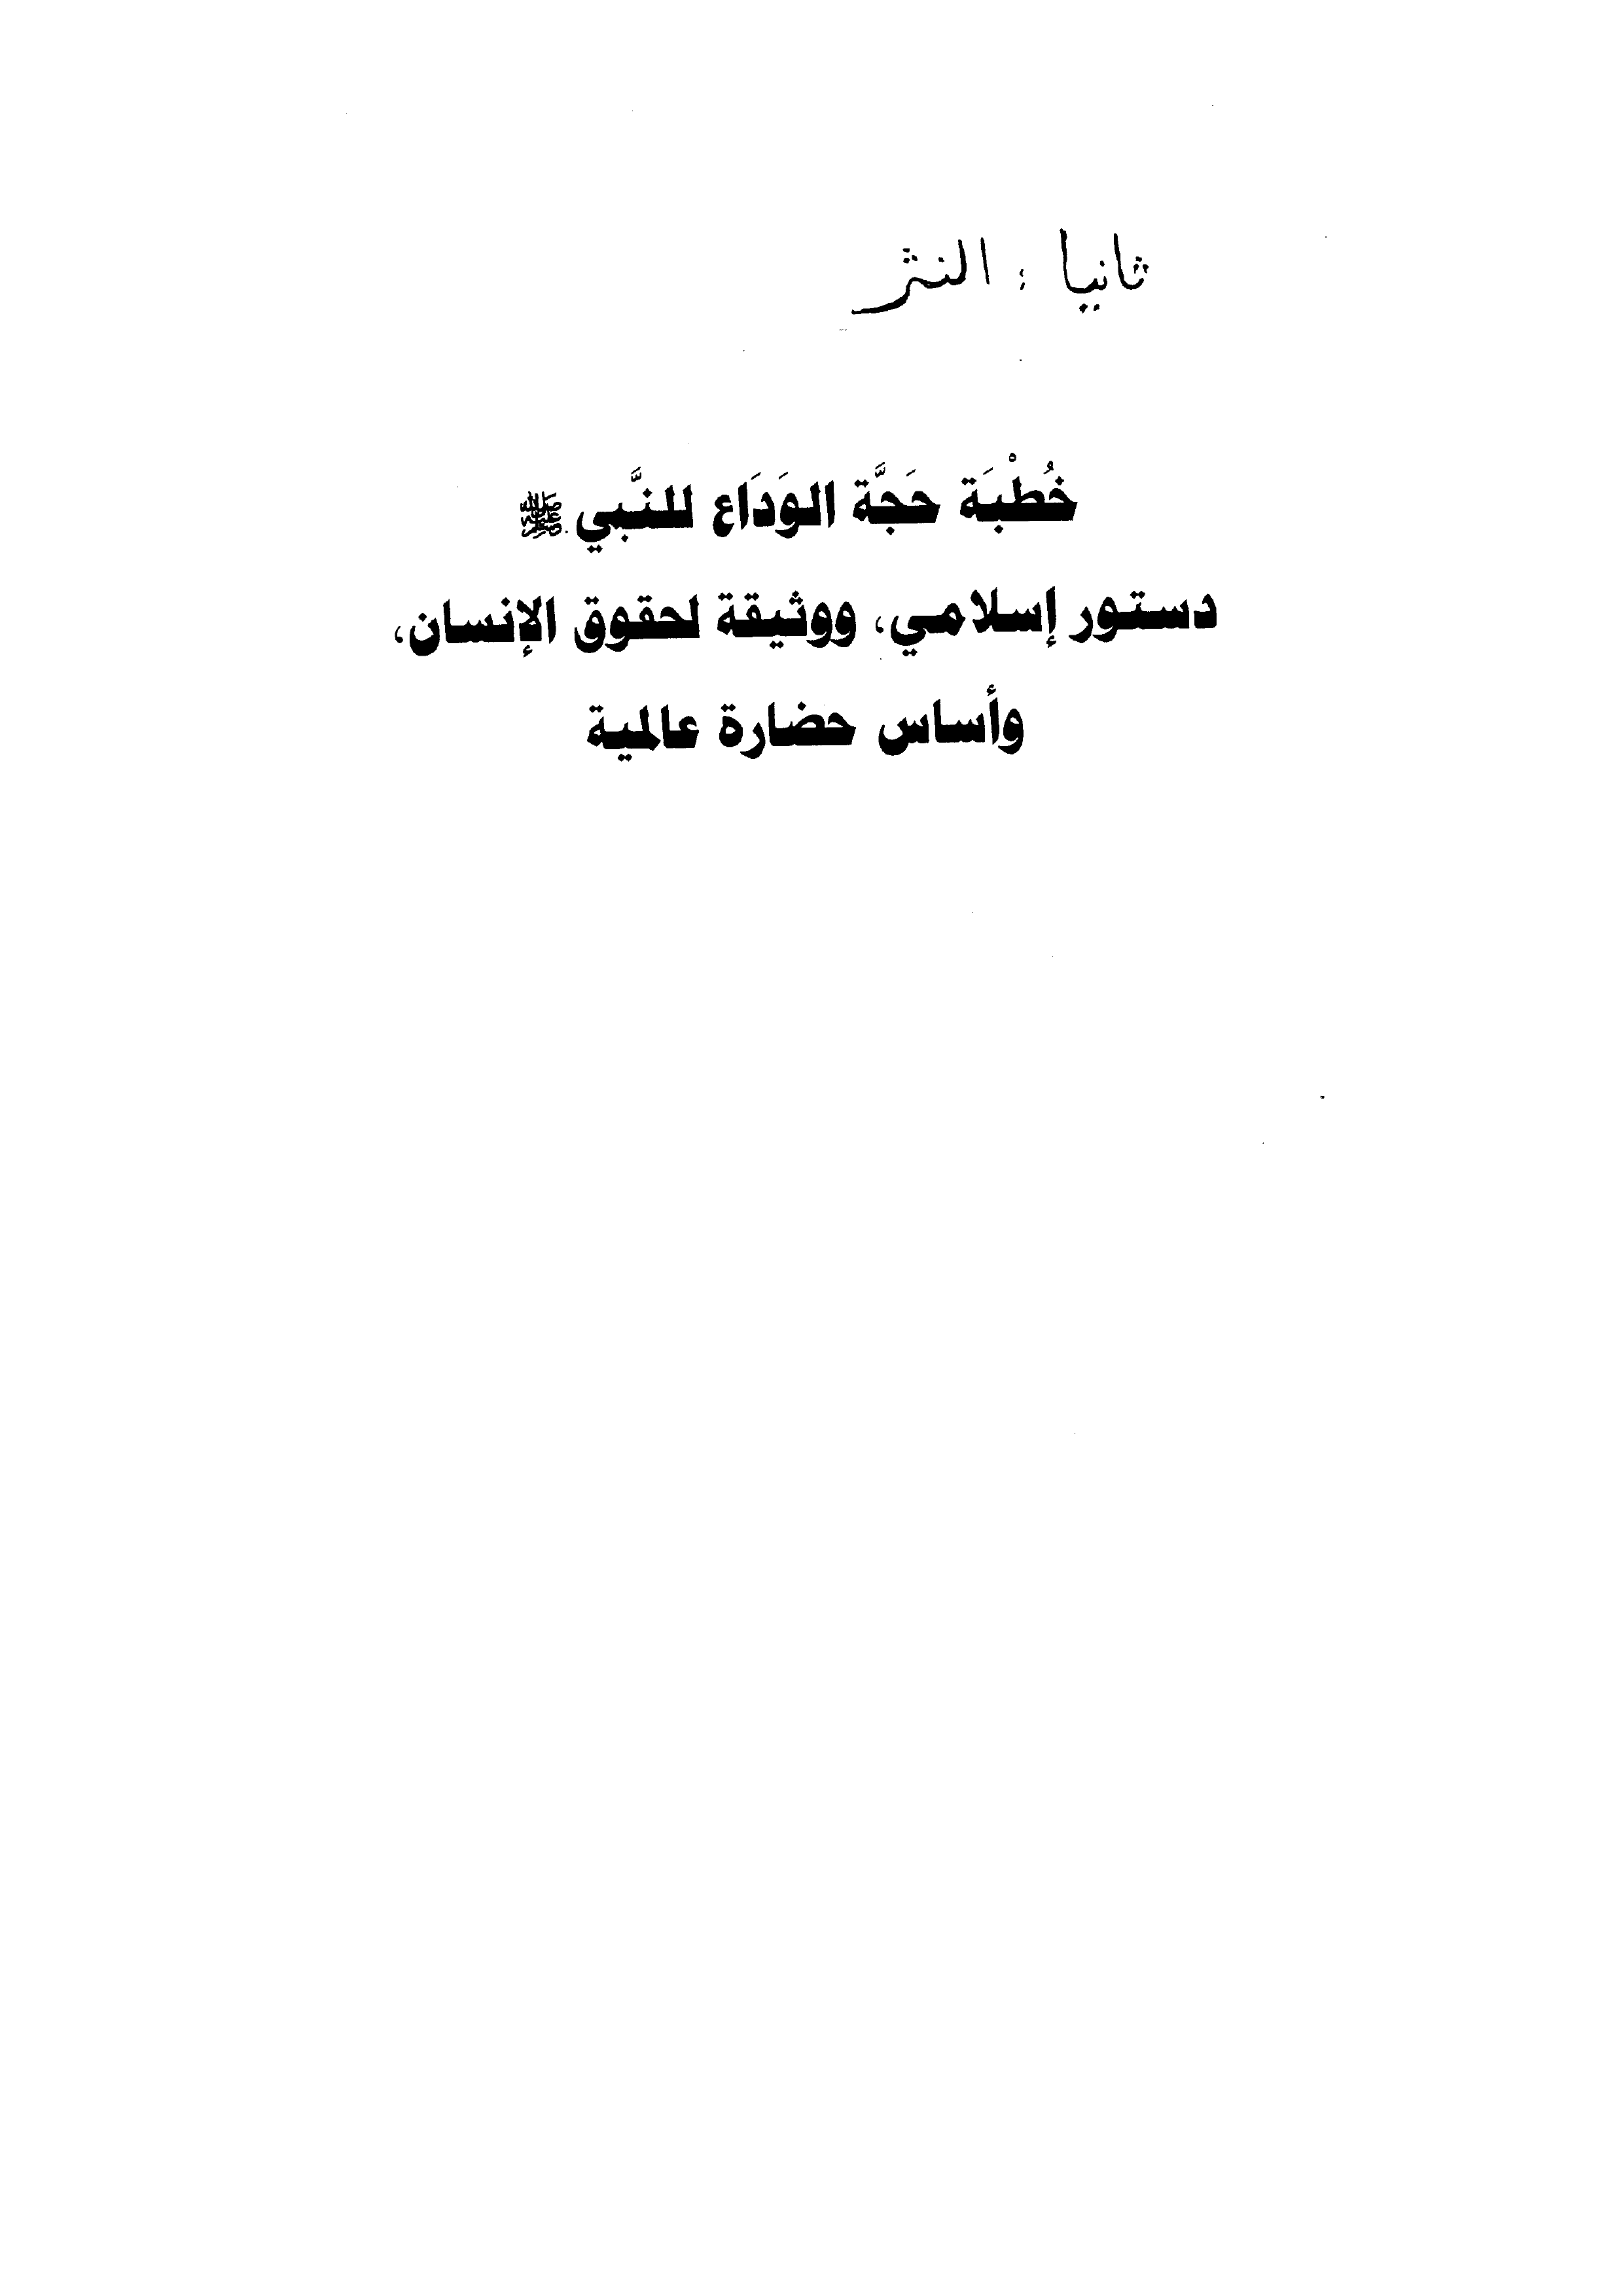 ثانيا : النثر
خُطْبَة حَجَّة الوَدَاع للنَّبي ﷺ
دستور إسلامي، ووثيقة لحقوق الإنسان،
وأساس حضارة عالمية